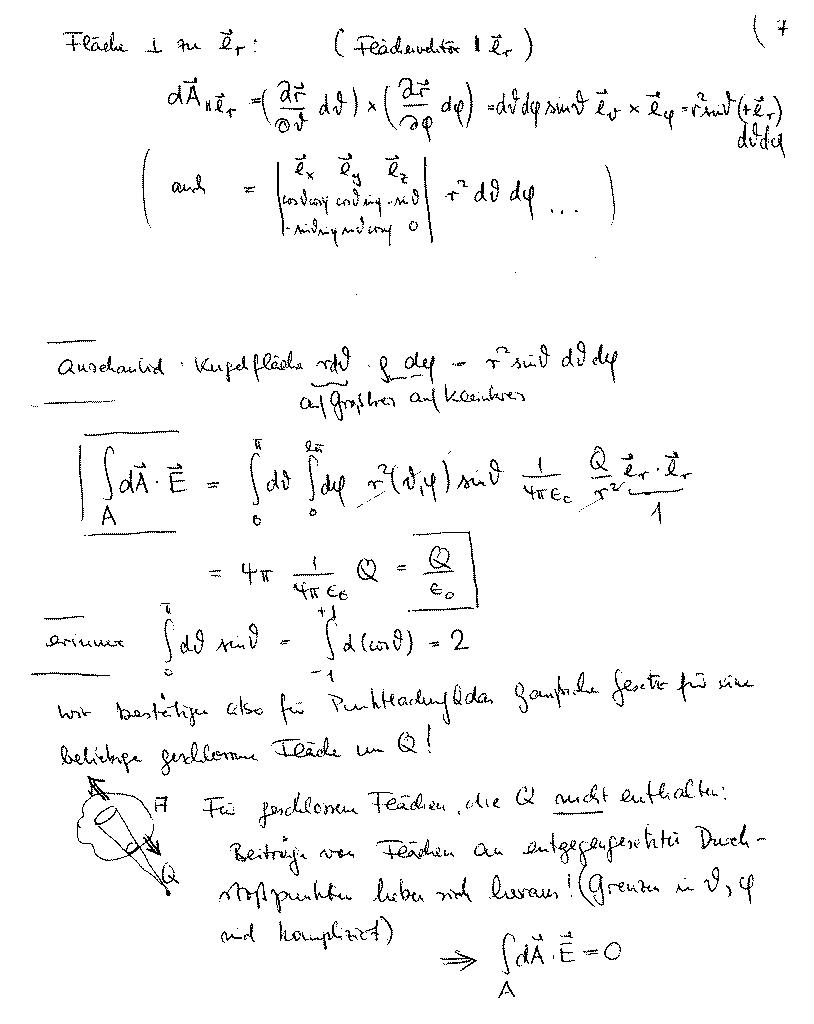 ( 7
Fläche ⊥ zu e⃗_r : ( Flächenvektor ∥ e⃗_r )
dA⃗_{∥e⃗_r} = (∂r⃗/∂ϑ dϑ) × (∂r⃗/∂φ dφ) = dϑdφ sinϑ e⃗_ϑ × e⃗_φ = r² sinϑ (+e⃗_r)
dϑdφ
( auch = | e⃗_x e⃗_y e⃗_z
cosϑcosφ cosϑsinφ -sinϑ
-sinϑsinφ sinϑcosφ 0 | r² dϑ dφ ... )
Anschaulich : Kugelfläche rdϑ · ρ dφ = r² sinϑ dϑdφ
auf Großkreis auf Kleinkreis
∫_A dA⃗ · E⃗ = ∫_0^π dϑ ∫_0^{2π} dφ r²(ϑ,φ) sinϑ 1/(4πε₀) Q/r² e⃗_r · e⃗_r
1
= 4π 1/(4πε₀) Q = Q/ε₀
erinnere ∫_0^π dϑ sinϑ = ∫_{-1}^{+1} d(cosϑ) = 2
Wir bestätigen also für Punktladung Q das Gaußsche Gesetz für eine
beliebige geschlossene Fläche um Q!
A Für geschlossene Flächen, die Q nicht enthalten:
Beiträge von Flächen an entgegengesetzten Durch-
Q stoßpunkten heben sich heraus! (Grenzen in ϑ, φ
sind kompliziert)
⇒ ∫_A dA⃗ · E⃗ = 0